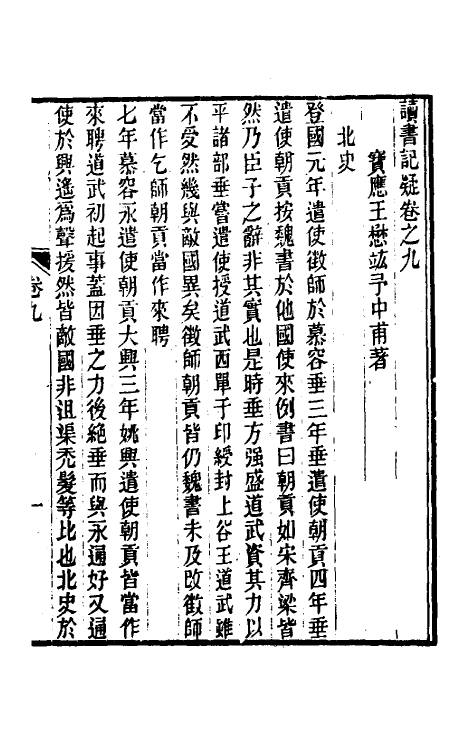 讀書記疑卷之九
寶應王懋竑予中甫著
北史
登國元年遣使徵師於慕容垂三年垂遣使朝貢四年垂
遣使朝貢按魏書於他國使來例書曰朝貢如宋齊梁皆
然乃臣子之辭非其實也是時垂方强盛道武資其力以
平諸部垂嘗遣使授道武西單于印綬封上谷王道武雖
不受然幾與敵國異矣徵師朝貢皆仍魏書未及改徵師
當作乞師朝貢當作來聘
七年慕容永遣使朝貢大興三年姚興遣使朝貢皆當作
來聘道武初起事蓋因垂之力後絶垂而與永通好又通
使於興遙爲聲援然皆敵國非沮渠禿髮等比也北史於
卷九
一